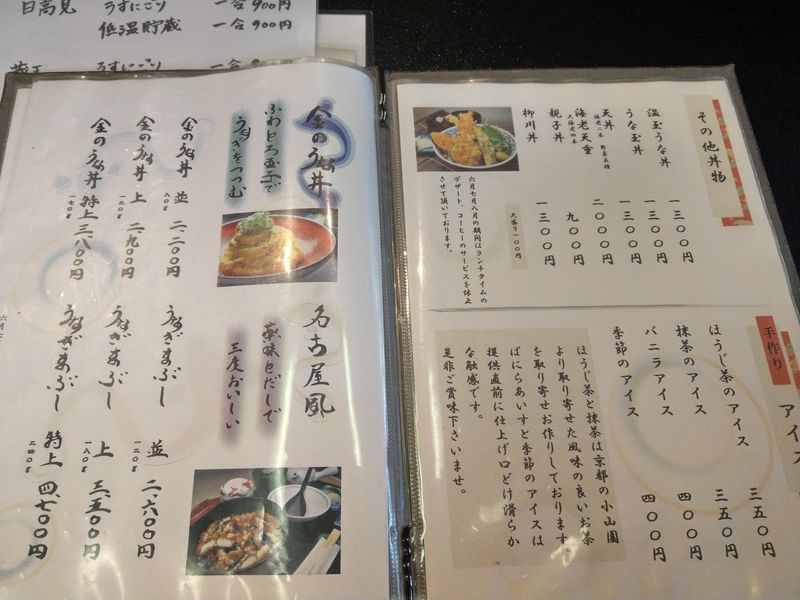 日高見 うすにごり 一合 900円
低温貯蔵 一合 900円
うすにごり 一合
金のうな丼
ふわとろ玉子で
うなぎをつつむ
金のうな丼 並 八〇g 二、二〇〇円
金のうな丼 上 一二〇g 二、九〇〇円
金のうな丼 特上 一七〇g 三、八〇〇円
名古屋風
薬味とだしで
三度おいしい
うなぎまぶし 並 一二〇g 二、六〇〇円
うなぎまぶし 上 一八〇g 三、五〇〇円
うなぎまぶし 特上 二四〇g 四、七〇〇円
六月七
その他丼物
温玉うな丼 一三〇〇円
うな玉丼 一三〇〇円
天丼 海老二本 野菜五種 一三〇〇円
海老天重 大海老四本 二〇〇〇円
親子丼 九〇〇円
柳川丼 一三〇〇円
大盛り一〇〇円
六月七月八月の期間はランチタイムの
デザート、コーヒーのサービスを休止
させて頂いております。
手作り アイス
ほうじ茶のアイス 三五〇円
抹茶のアイス 三五〇円
バニラアイス 四〇〇円
季節のアイス 四〇〇円
ほうじ茶と抹茶は京都の小山園
より取り寄せた風味の良いお茶
を取り寄せお作りしております。
ばにらあいすと季節のアイスは
提供直前に仕上げ口どけ滑らか
な触感です。
是非ご賞味下さいませ。